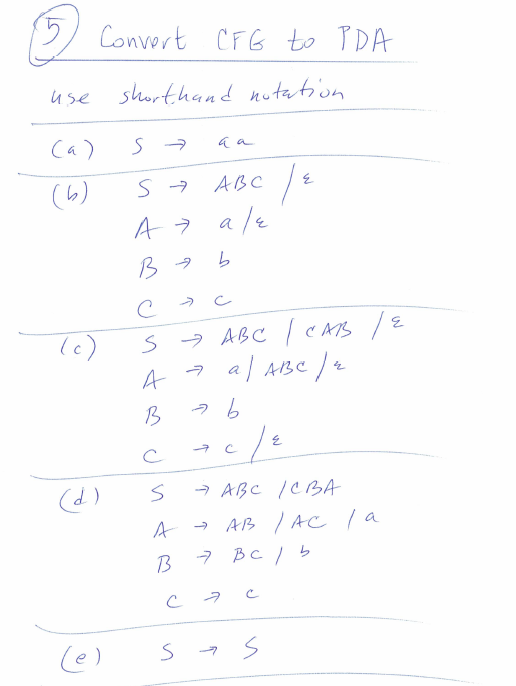 5 Convert CFG to PDA
use shorthand notation
(a) S → aa
(b) S → ABC / ε
A → a / ε
B → b
C → c
(c) S → ABC / CAB / ε
A → a / ABC / ε
B → b
C → c / ε
(d) S → ABC / CBA
A → AB / AC / a
B → BC / b
C → c
(e) S → S